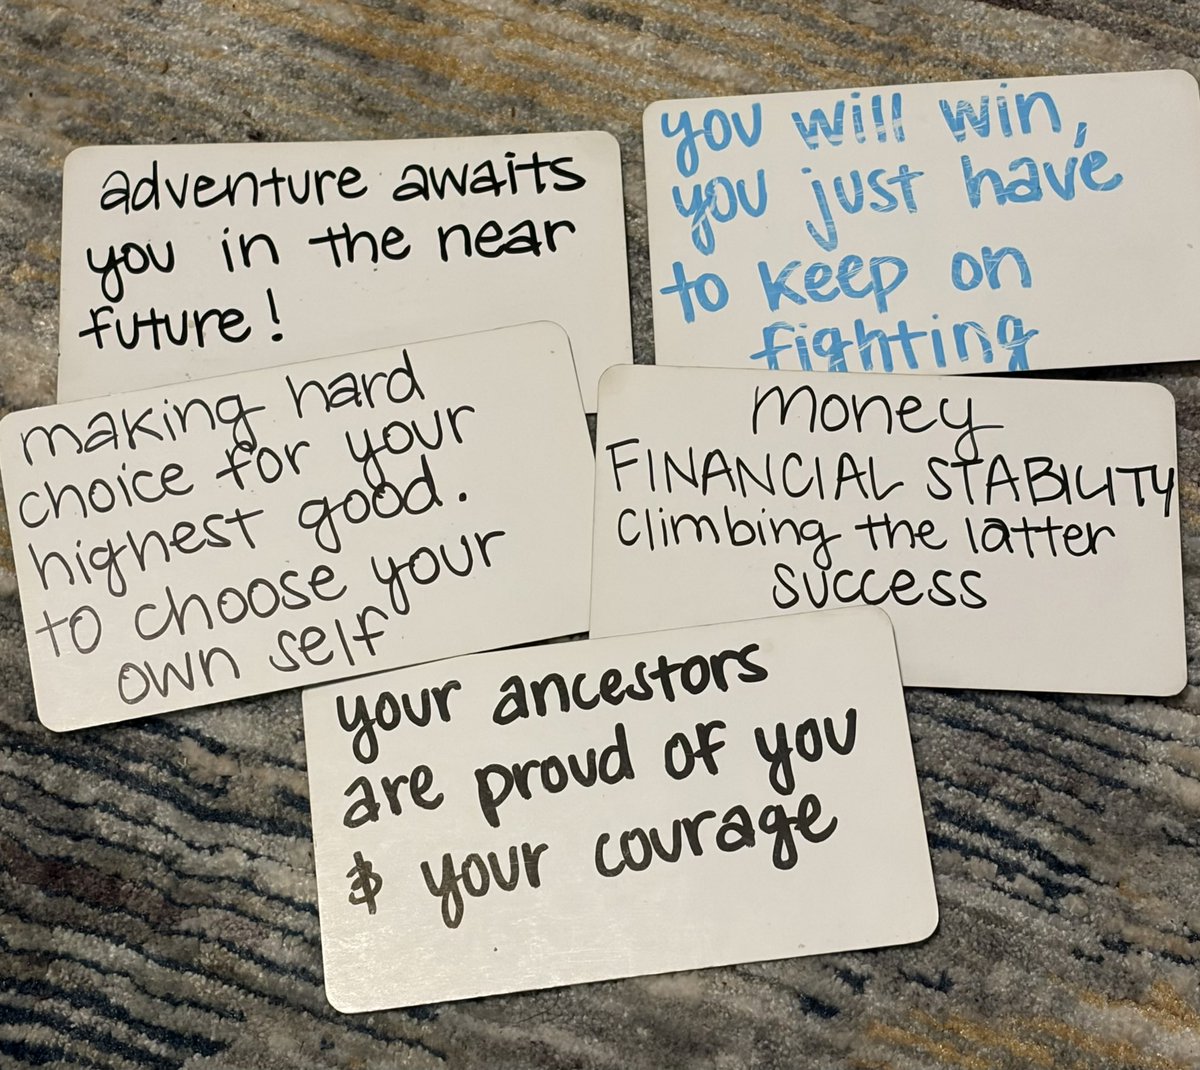 adventure awaits
you in the near
future!
you will win,
you just have
to keep on
fighting
making hard
choice for your
highest good.
to choose your
own self
money
FINANCIAL STABILITY
climbing the latter
success
your ancestors
are proud of you
& your courage